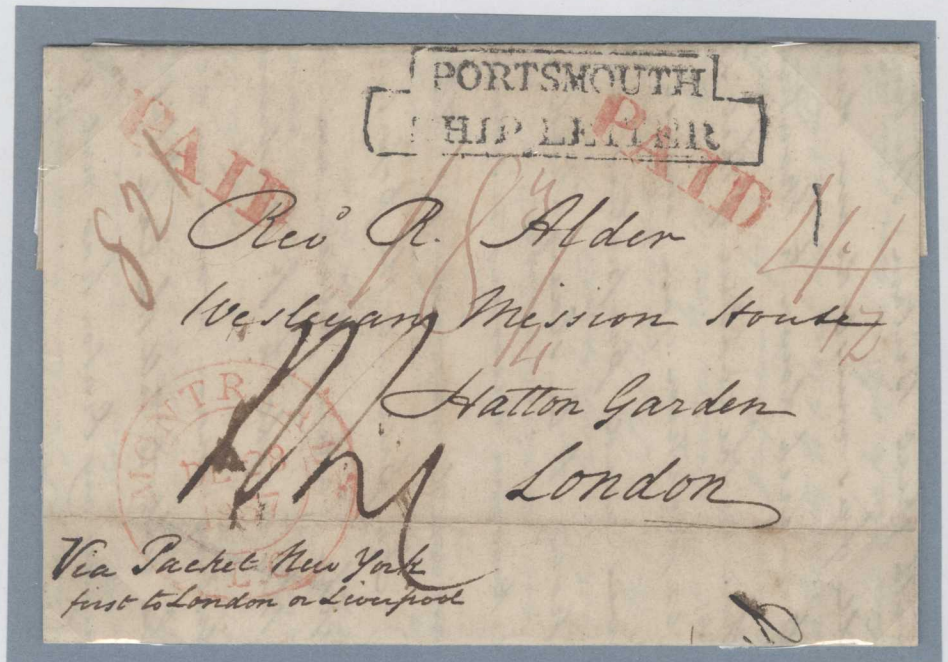 PORTSMOUTH
SHIP LETTER
PAID
PAID
821
Revd R. Alder
Wesleyan Mission House
Hatton Garden
London
MONTREAL
Via Packet New York
first to London or Liverpool